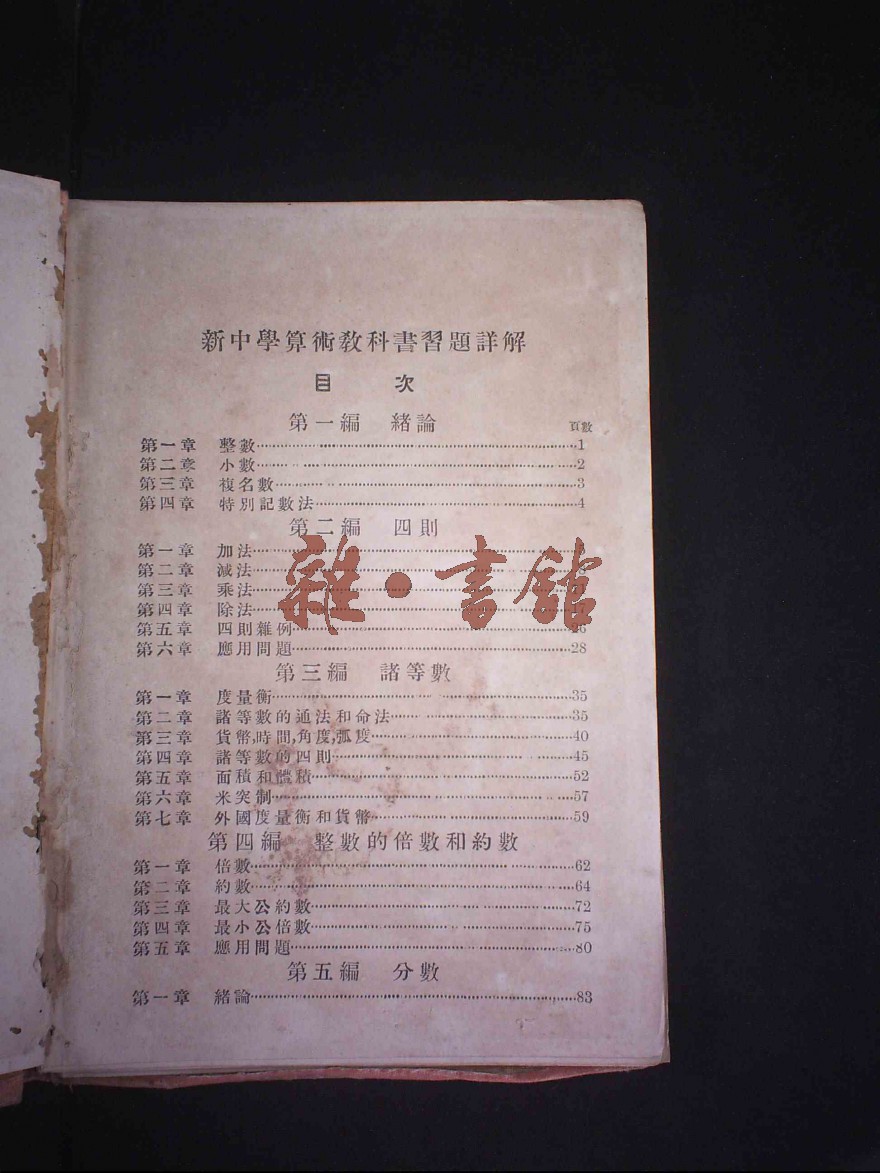 新中學算術教科書習題詳解
目 次
第一編 緒論
頁數
第一章 整數 1
第二章 小數 2
第三章 複名數 3
第四章 特別記數法 4
第二編 四則
第一章 加法
第二章 減法
第三章 乘法
第四章 除法
第五章 四則雜例 26
第六章 應用問題 28
雜·書館
第三編 諸等數
第一章 度量衡 35
第二章 諸等數的通法和命法 35
第三章 貨幣,時間,角度,弧度 40
第四章 諸等數的四則 45
第五章 面積和體積 52
第六章 米突制 57
第七章 外國度量衡和貨幣 59
第四編 整數的倍數和約數
第一章 倍數 62
第二章 約數 64
第三章 最大公約數 72
第四章 最小公倍數 75
第五章 應用問題 80
第五編 分數
第一章 緒論 83